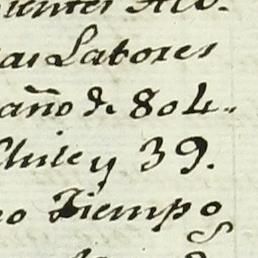 as Labores
año de 804..
Chile y 39.
o Tiempo